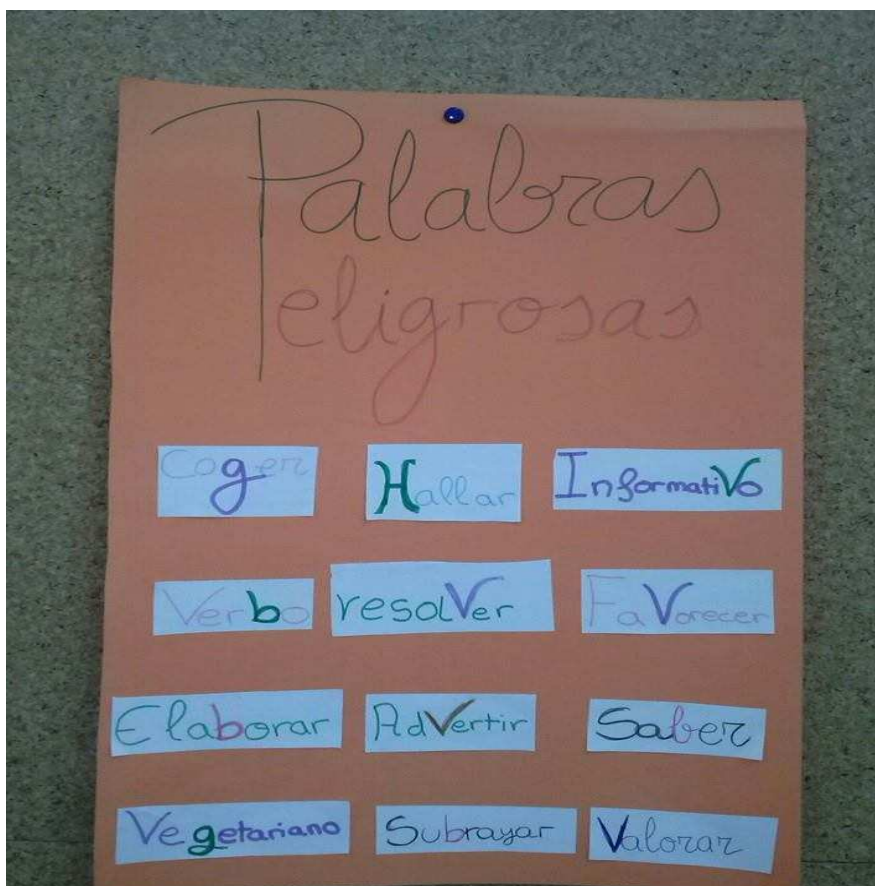 Palabras
Peligrosas
Coger Hallar InformatiVo
Verbo resolVer FaVorecer
Elaborar AdVertir Saber
Vegetariano Subrayar Valorar